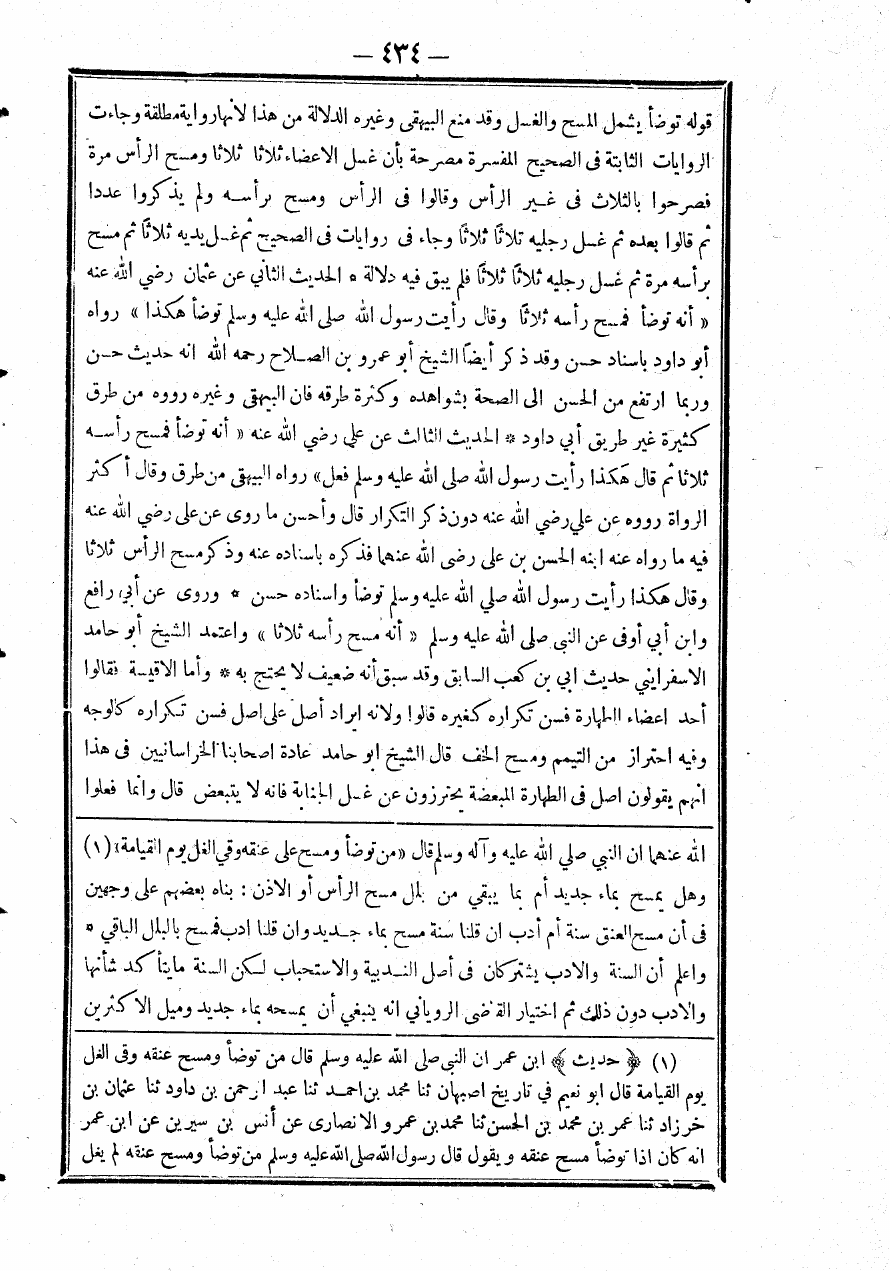 — ٤٣٤ —
قوله توضأ يشمل المسح والغسل وقد منع البيهقى وغيره الدلالة من هذا لأنها رواية مطلقة وجاءت
الروايات الثابتة فى الصحيح المفسرة مصرحة بأن غسل الاعضاء ثلاثا ثلاثا ومسح الرأس مرة
فصرحوا بالثلاث فى غير الرأس وقالوا فى الرأس ومسح برأسه ولم يذكروا عددا
ثم قالوا بعده ثم غسل رجليه ثلاثًا ثلاثًا وجاء فى روايات فى الصحيح ثم غسل يديه ثلاثًا ثم مسح
برأسه مرة ثم غسل رجليه ثلاثًا ثلاثًا فلم يبق فيه دلالة * الحديث الثاني عن عثمان رضي الله عنه
« أنه توضأ فمسح رأسه ثلاثًا وقال رأيت رسول الله صلى الله عليه وسلم توضأ هكذا » رواه
أبو داود باسناد حسن وقد ذكر أيضاً الشيخ أبو عمرو بن الصلاح رحمه الله انه حديث حسن
وربما ارتفع من الحسن الى الصحة بشواهده وكثرة طرقه فان البيهقى وغيره رووه من طرق
كثيرة غير طريق أبي داود * الحديث الثالث عن على رضي الله عنه « أنه توضأ فمسح رأسه
ثلاثا ثم قال هكذا رأيت رسول الله صلى الله عليه وسلم فعل» رواه البيهقى من طرق وقال أكثر
الرواة رووه عن على رضي الله عنه دون ذكر التكرار قال وأحسن ما روى عن على رضي الله عنه
فيه ما رواه عنه ابنه الحسن بن على رضى الله عنهما فذكره باسناده عنه وذكر مسح الرأس ثلاثا
وقال هكذا رأيت رسول الله صلي الله عليه وسلم توضأ واسناده حسن * وروى عن أبي رافع
وابن أبي أوفى عن النبى صلى الله عليه وسلم « أنه مسح رأسه ثلاثا » واعتمد الشيخ أبو حامد
الاسفرايني حديث ابي بن كعب السابق وقد سبق أنه ضعيف لا يحتج به * وأما الاقيسة فقالوا
أحد اعضاء الطهارة فسن تكراره كغيره قالوا ولانه ايراد أصل على اصل فسن تكراره كالوجه
وفيه احتراز من التيمم ومسح الخف قال الشيخ ابو حامد عادة اصحابنا الخراسانيين فى هذا
انهم يقولون اصل فى الطهارة المبعضة يحترزون عن غسل الجنابة فانه لا يتبعض قال وانما فعلوا
الله عنهما ان النبي صلي الله عليه وآله وسلم قال «من توضأ ومسح على عنقه وقي الغل يوم القيامة» (١)
وهل يمسح بماء جديد أم بما يبقي من بلل مسح الرأس أو الاذن : بناه بعضهم على وجهين
فى أن مسح العنق سنة أم أدب ان قلنا سنة مسح بماء جديد وان قلنا ادب فمسح بالبلل الباقي *
واعلم أن السنة والادب يشتركان فى أصل الندبية والاستحباب لكن السنة مايتأكد شأنها
والادب دون ذلك ثم اختيار القاضى الروياني انه ينبغي أن يمسحه بماء جديد وميل الاكثرين
(١) ﴿ حديث ﴾ ابن عمر ان النبي صلى الله عليه وسلم قال من توضأ ومسح عنقه وقى الغل
يوم القيامة قال ابو نعيم في تاريخ اصبهان ثنا محمد بن احمد ثنا عبد الرحمن بن داود ثنا عثمان بن
خرزاد ثنا عمر بن محمد بن الحسن ثنا محمد بن عمرو الانصارى عن أنس بن سيرين عن ابن عمر
انه كان اذا توضأ مسح عنقه ويقول قال رسول الله صلى الله عليه وسلم من توضأ ومسح عنقه لم يغل